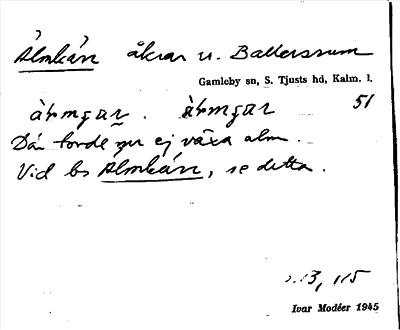 Älmkärr åkrar u. Ballersrum
Gamleby sn, S. Tjusts hd, Kalm. l.
51
Där torde nu ej växa alm.
Vid bs Älmkärr, se detta.
13, 115
Ivar Modéer 1945